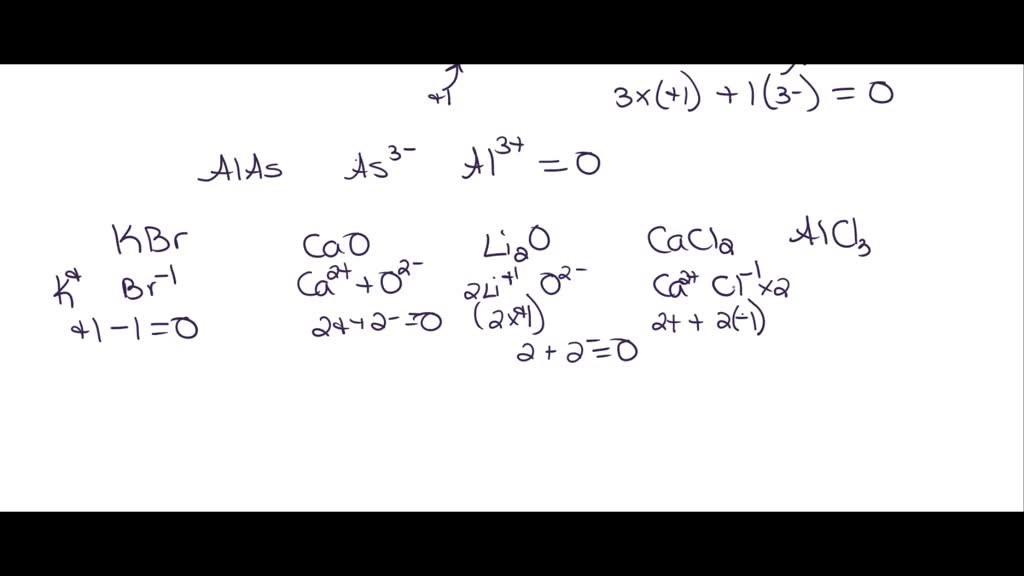 +1 3×(+1) + 1(3-) = 0
AlAs As³⁻ Al³⁺ = 0
KBr CaO Li₂O CaCl₂ AlCl₃
K⁺ Br⁻¹ Ca²⁺ + O²⁻ 2Li⁺¹ O²⁻ Ca²⁺ Cl⁻¹×2
+1 - 1 = 0 2+ + 2- = 0 (2×+1) 2+ + 2(-1)
2 + 2⁻ = 0